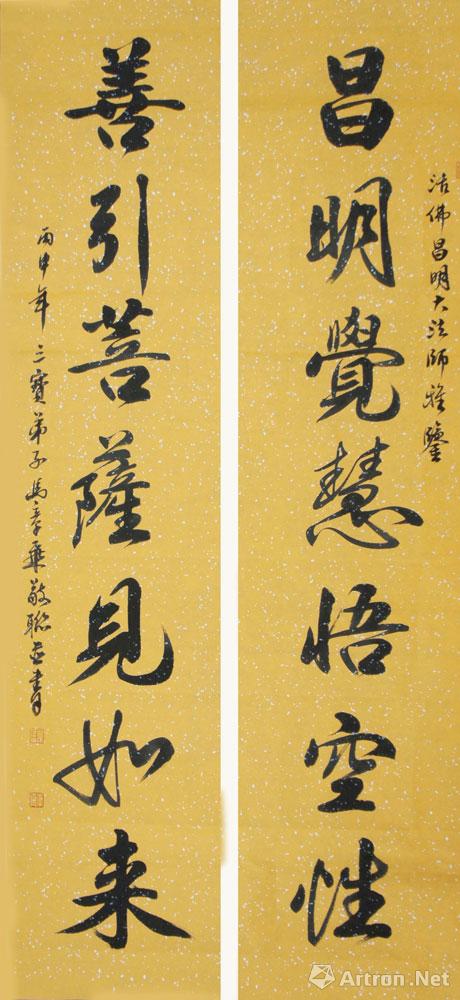 活佛昌明大法師雅鑒
昌明覺慧悟空性
善引菩薩見如来
丙申年三寶弟子馬敬聯並書
Artron.Net